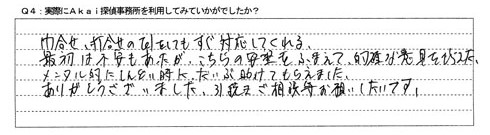 Q4:実際にAkai探偵事務所を利用してみていかがでしたか?
問合せ、打合せの をしてもすぐ対応してくれる。
最初は不安もあったが、こちらの要望をふまえて、的確な意見を
メンタル的にしんどい時に、だいぶ助けてもらえました。
ありがとうございました。引続きご相談等お願いしたいです。